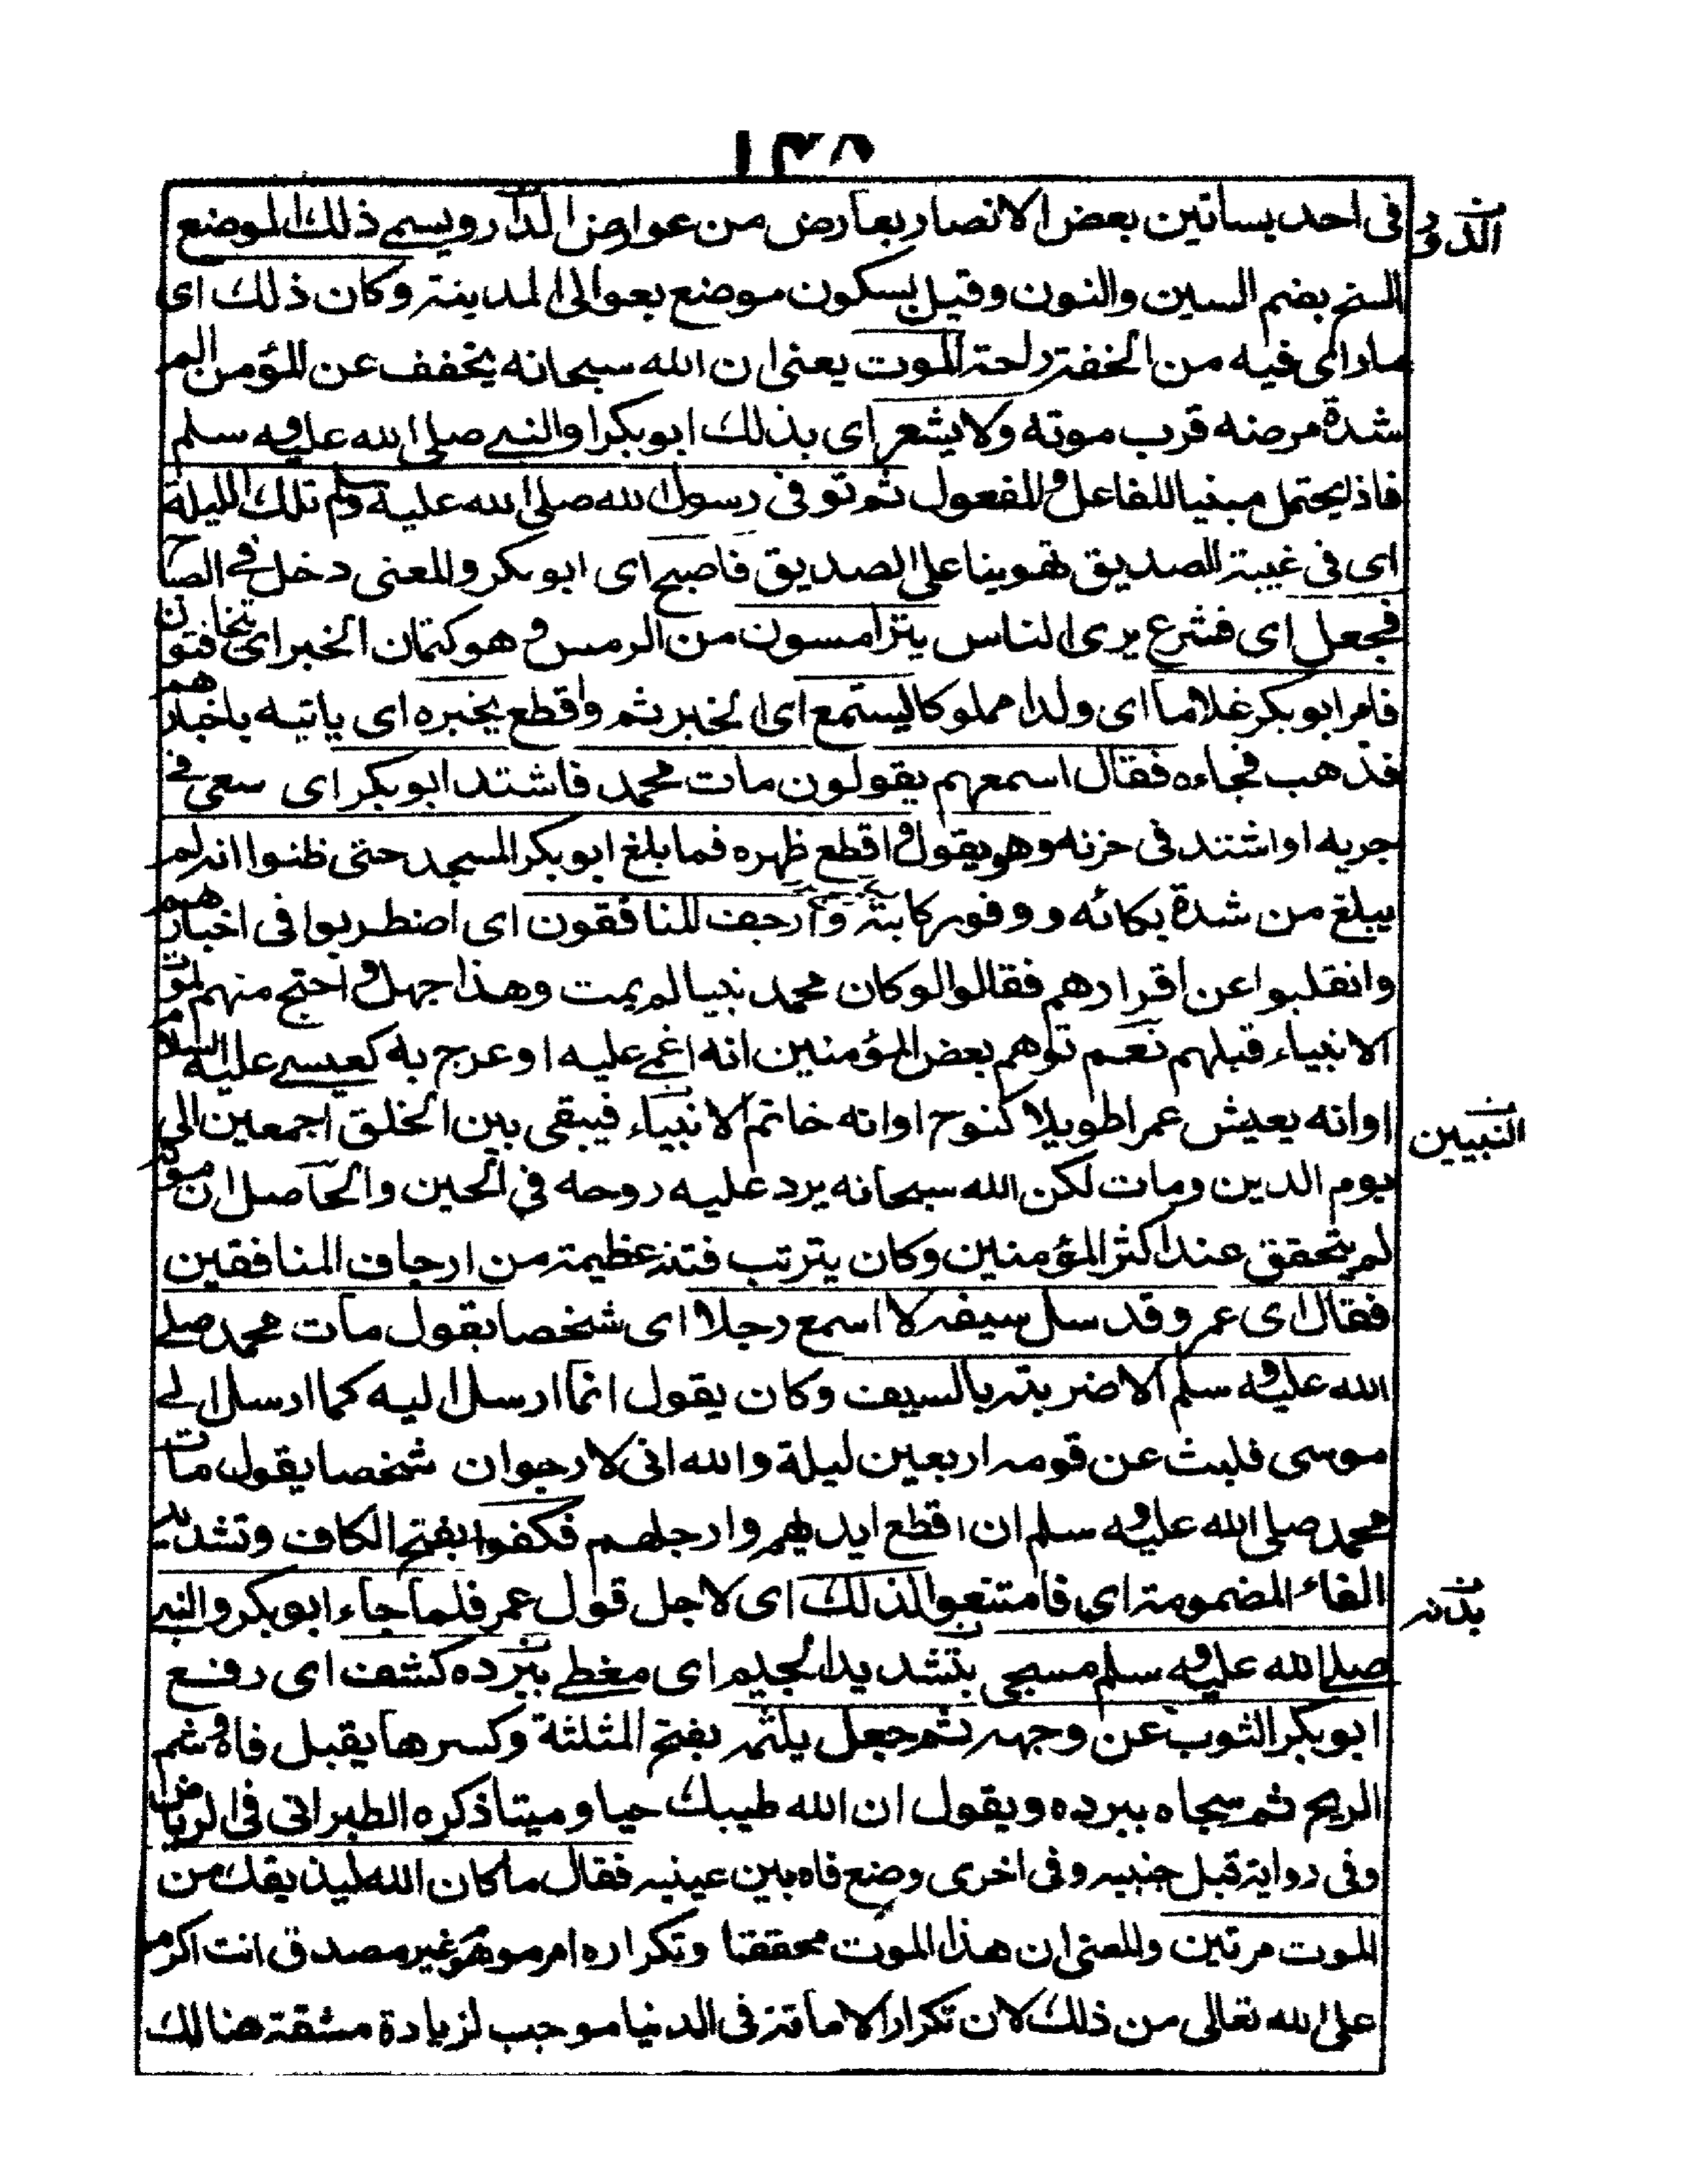 ١٣٨
فى احد بساتين بعض الانصار بعارض من عوارض الدار ويسمى ذلك الموضع
الدور
السنح بضم السين والنون وقيل بسكون موضع بعوالى المدينة وكان ذلك اى
ما راى فيه من الخفة راحة الموت يعنى ان الله سبحانه يخفف عن المؤمن الم
شدة مرضه قرب موته ولا يشعر اى بذلك ابوبكر والنبى صلى الله عليه وسلم
فاذ يحتمل مبنيا للفاعل وللمفعول ثم توفى رسول الله صلى الله عليه وسلم تلك الليلة
اى فى غيبة الصديق تهوينا على الصديق فاصبح اى ابوبكر والمعنى دخل فى الصباح
فجعل اى فشرع يرى الناس يترامسون من الرمس وهو كتمان الخبر اى يتخافتون
فامر ابوبكر غلاما اى ولدا مملوكا ليستمع اى الخبر ثم واقطع يخبره اى ياتيه باخبارهم
فذهب فجاءه فقال اسمعهم يقولون مات محمد فاشتد ابوبكر اى سعى فى
جريه او اشتد فى حزنه وهو يقول واقطع ظهره فما بلغ ابوبكر المسجد حتى ظنوا انه لم
يبلغ من شدة بكائه ووفور كابته وارجف المنافقون اى اضطربوا فى اخبارهم
وانقلبوا عن اقرارهم فقالوا لو كان محمد نبيا لم يمت وهذا جهل واحتج منهم لموت
الانبياء قبلهم نعم توهم بعض المؤمنين انه اغمى عليه او عرج به كعيسى عليه السلام
او انه يعيش عمرا طويلا كنوح او انه خاتم الانبياء فيبقى بين الخلق اجمعين الى
النبيين
يوم الدين ومات لكن الله سبحانه يرد عليه روحه فى الحين والحاصل ان موته
لم يتحقق عند اكثر المؤمنين وكان يترتب فتنة عظيمة من ارجاف المنافقين
فقال اى عمر وقد سل سيفه لا اسمع رجلا اى شخصا يقول مات محمد صلى
الله عليه وسلم الا ضربته بالسيف وكان يقول انما ارسل اليه كما ارسل الى
موسى فلبث عن قومه اربعين ليلة والله انى لارجو ان شخصا يقول مات
محمد صلى الله عليه وسلم ان اقطع ايديهم وارجلهم فكفوا بفتح الكاف وتشديد
الفاء المضمومة اى فامتنعوا لذلك اى لاجل قول عمر فلما جاء ابوبكر والنبى
بدنه
صلى الله عليه وسلم مسجى بتشديد الجيم اى مغطى ببرده كشف اى رفع
ابوبكر الثوب عن وجهه ثم جعل يلثمه بفتح المثلثة وكسرها يقبل فاه وشم
الريح ثم سجاه ببرده ويقول ان الله طيبك حيا وميتا ذكره الطبرانى فى الرياض
وفى رواية قبل جنبيه وفى اخرى وضع فاه بين عينيه فقال ما كان الله ليذيقك من
الموت مرتين والمعنى ان هذا الموت محققا وتكراره امر موهو غير مصدق انت اكرم
على الله تعالى من ذلك لان تكرار الاماتة فى الدنيا موجب لزيادة مشقة هنالك